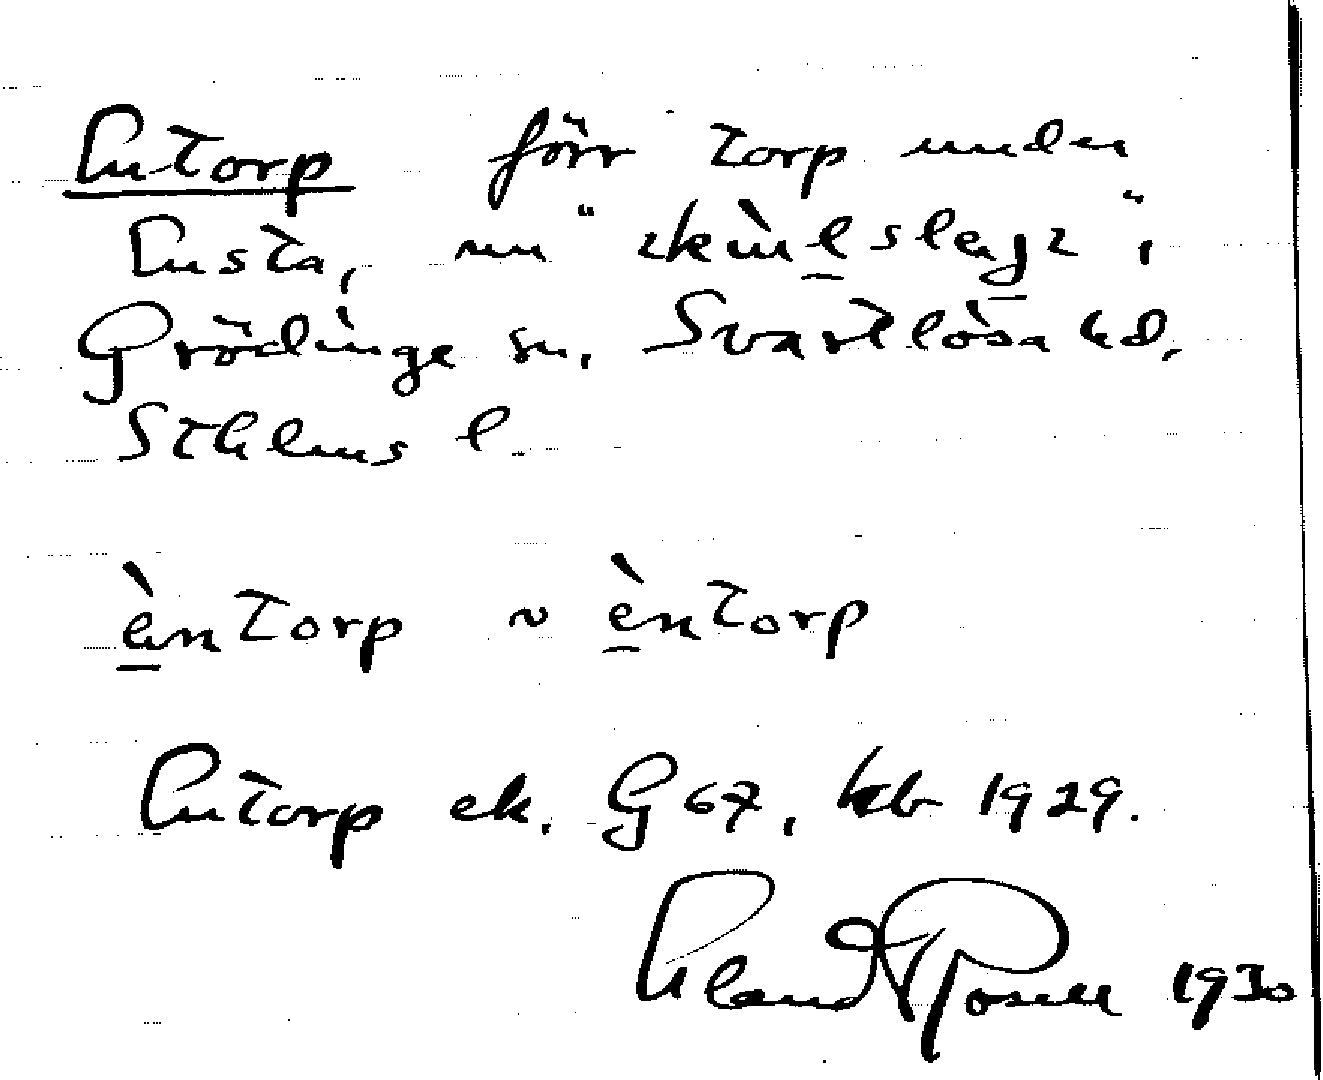 Entorp förr torp under
Ensta, nu
Grödinge sn, Svartlösa hd,
Sthlms l.
èntorp ~ èntorp
Entorp ek. G 67, kb 1929.
Erland Rosell 1930